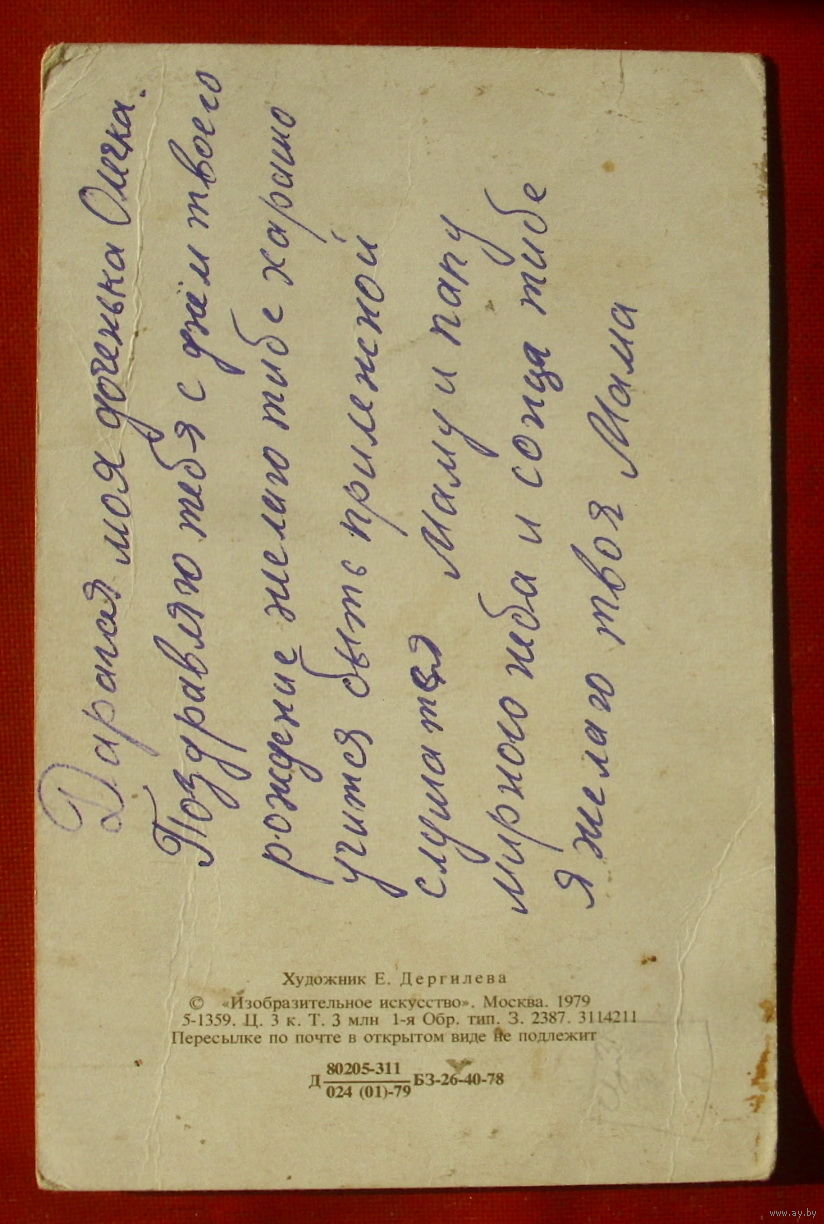 Дарагая моя доченька Олечка.
Поздравляю тебя с днём твоего
рождение желаю тибе харашо
учится быть прилежной
слушатся Маму и папу
мирного неба и сонца тибе
я желаю твоя Мама
Художник Е. Дергилева
© «Изобразительное искусство». Москва. 1979
5-1359. Ц. 3 к. Т. 3 млн 1-я Обр. тип. З. 2387. 3114211
Пересылке по почте в открытом виде не подлежит
Д 80205-311 БЗ-26-40-78
024 (01)-79
www.ay.by